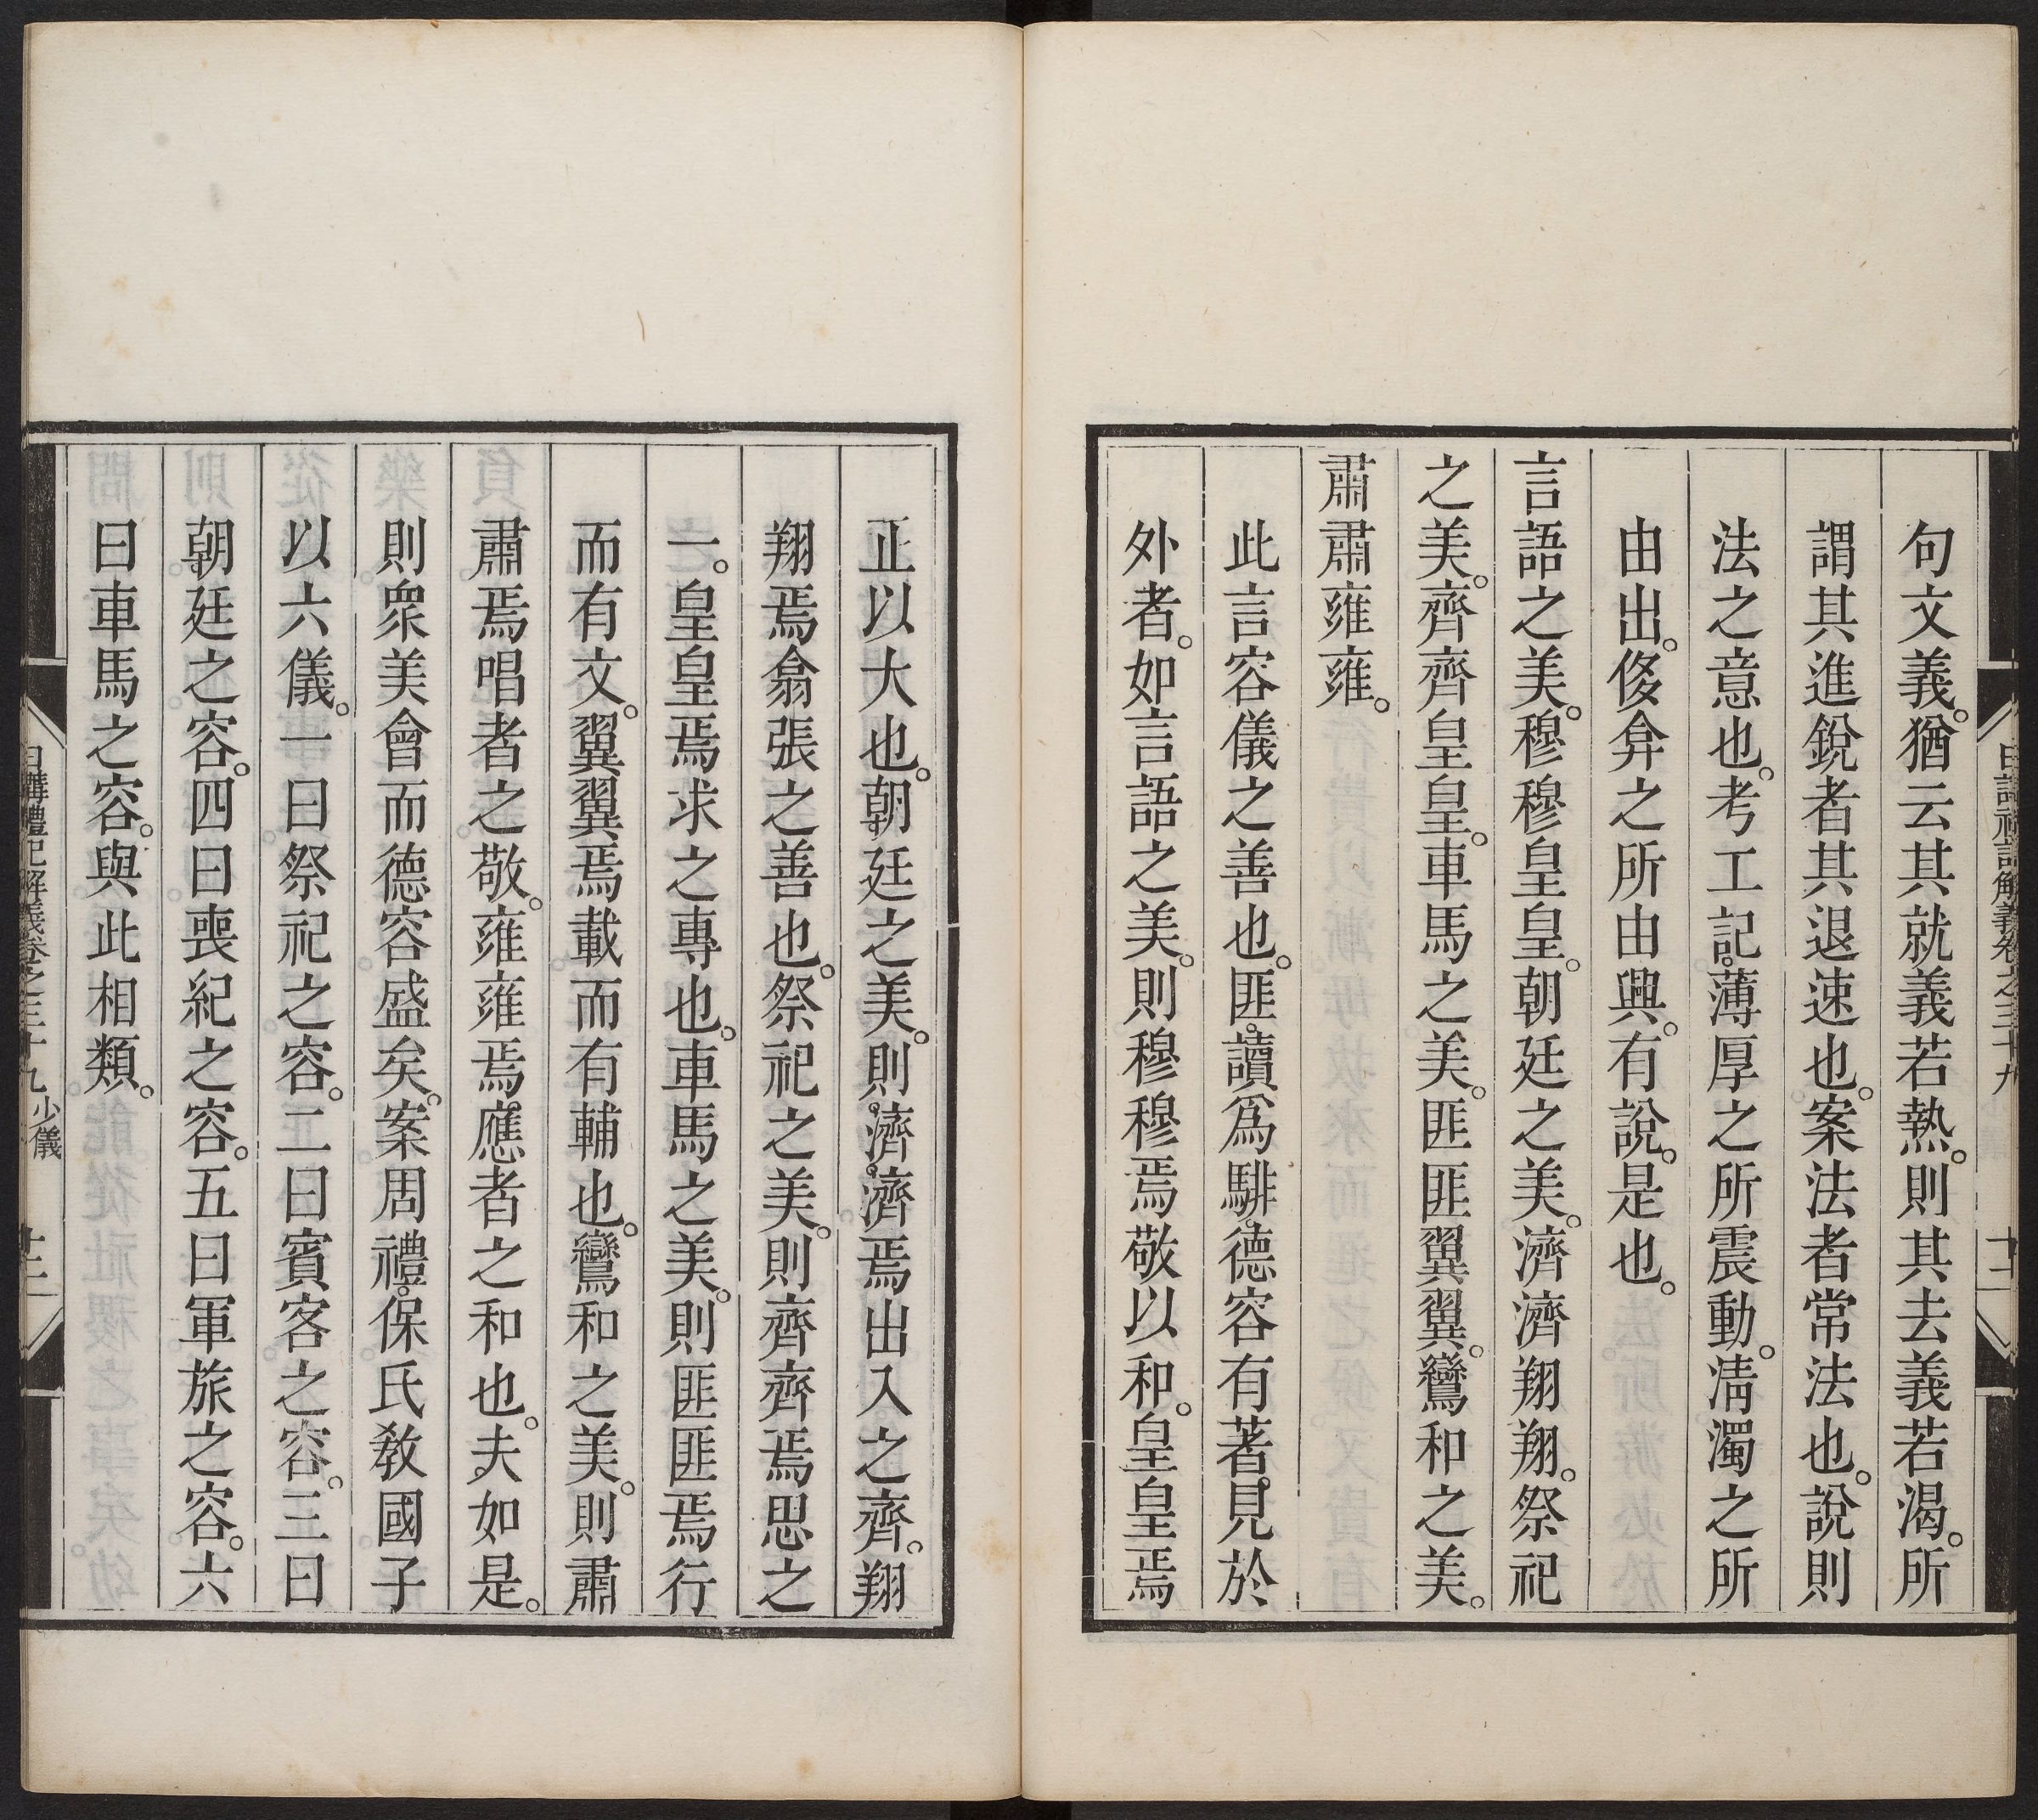 句文義。猶云其就義若熱。則其去義若渴。所
謂其進銳者其退速也。案法者常法也。說則
法之意也。考工記。薄厚之所震動。淸濁之所
由出。侈弇之所由興。有說。是也。
言語之美。穆穆皇皇。朝廷之美。濟濟翔翔。祭祀
之美。齊齊皇皇。車馬之美。匪匪翼翼。鸞和之美。
肅肅雍雍。
此言容儀之善也。匪。讀爲騑。德容有著。見於
外者。如言語之美。則穆穆焉敬以和。皇皇焉
正以大也。朝廷之美。則。濟。濟焉出入之齊。翔
翔焉翕張之善也。祭祀之美。則齊齊焉思之
一。皇皇焉求之專也。車馬之美。則匪匪焉行
而有文。翼翼焉載而有輔也。鸞和之美。則肅
肅焉唱者之敬。雍雍焉。應者之和也。夫如是。
則衆美會而德容盛矣。案周禮。保氏敎國子
以六儀。一曰祭祀之容。二曰賓客之容。三曰
朝廷之容。四曰喪紀之容。五曰軍旅之容。六
曰車馬之容。與此相類。
日講禮記解義卷之三十九 少儀 十二